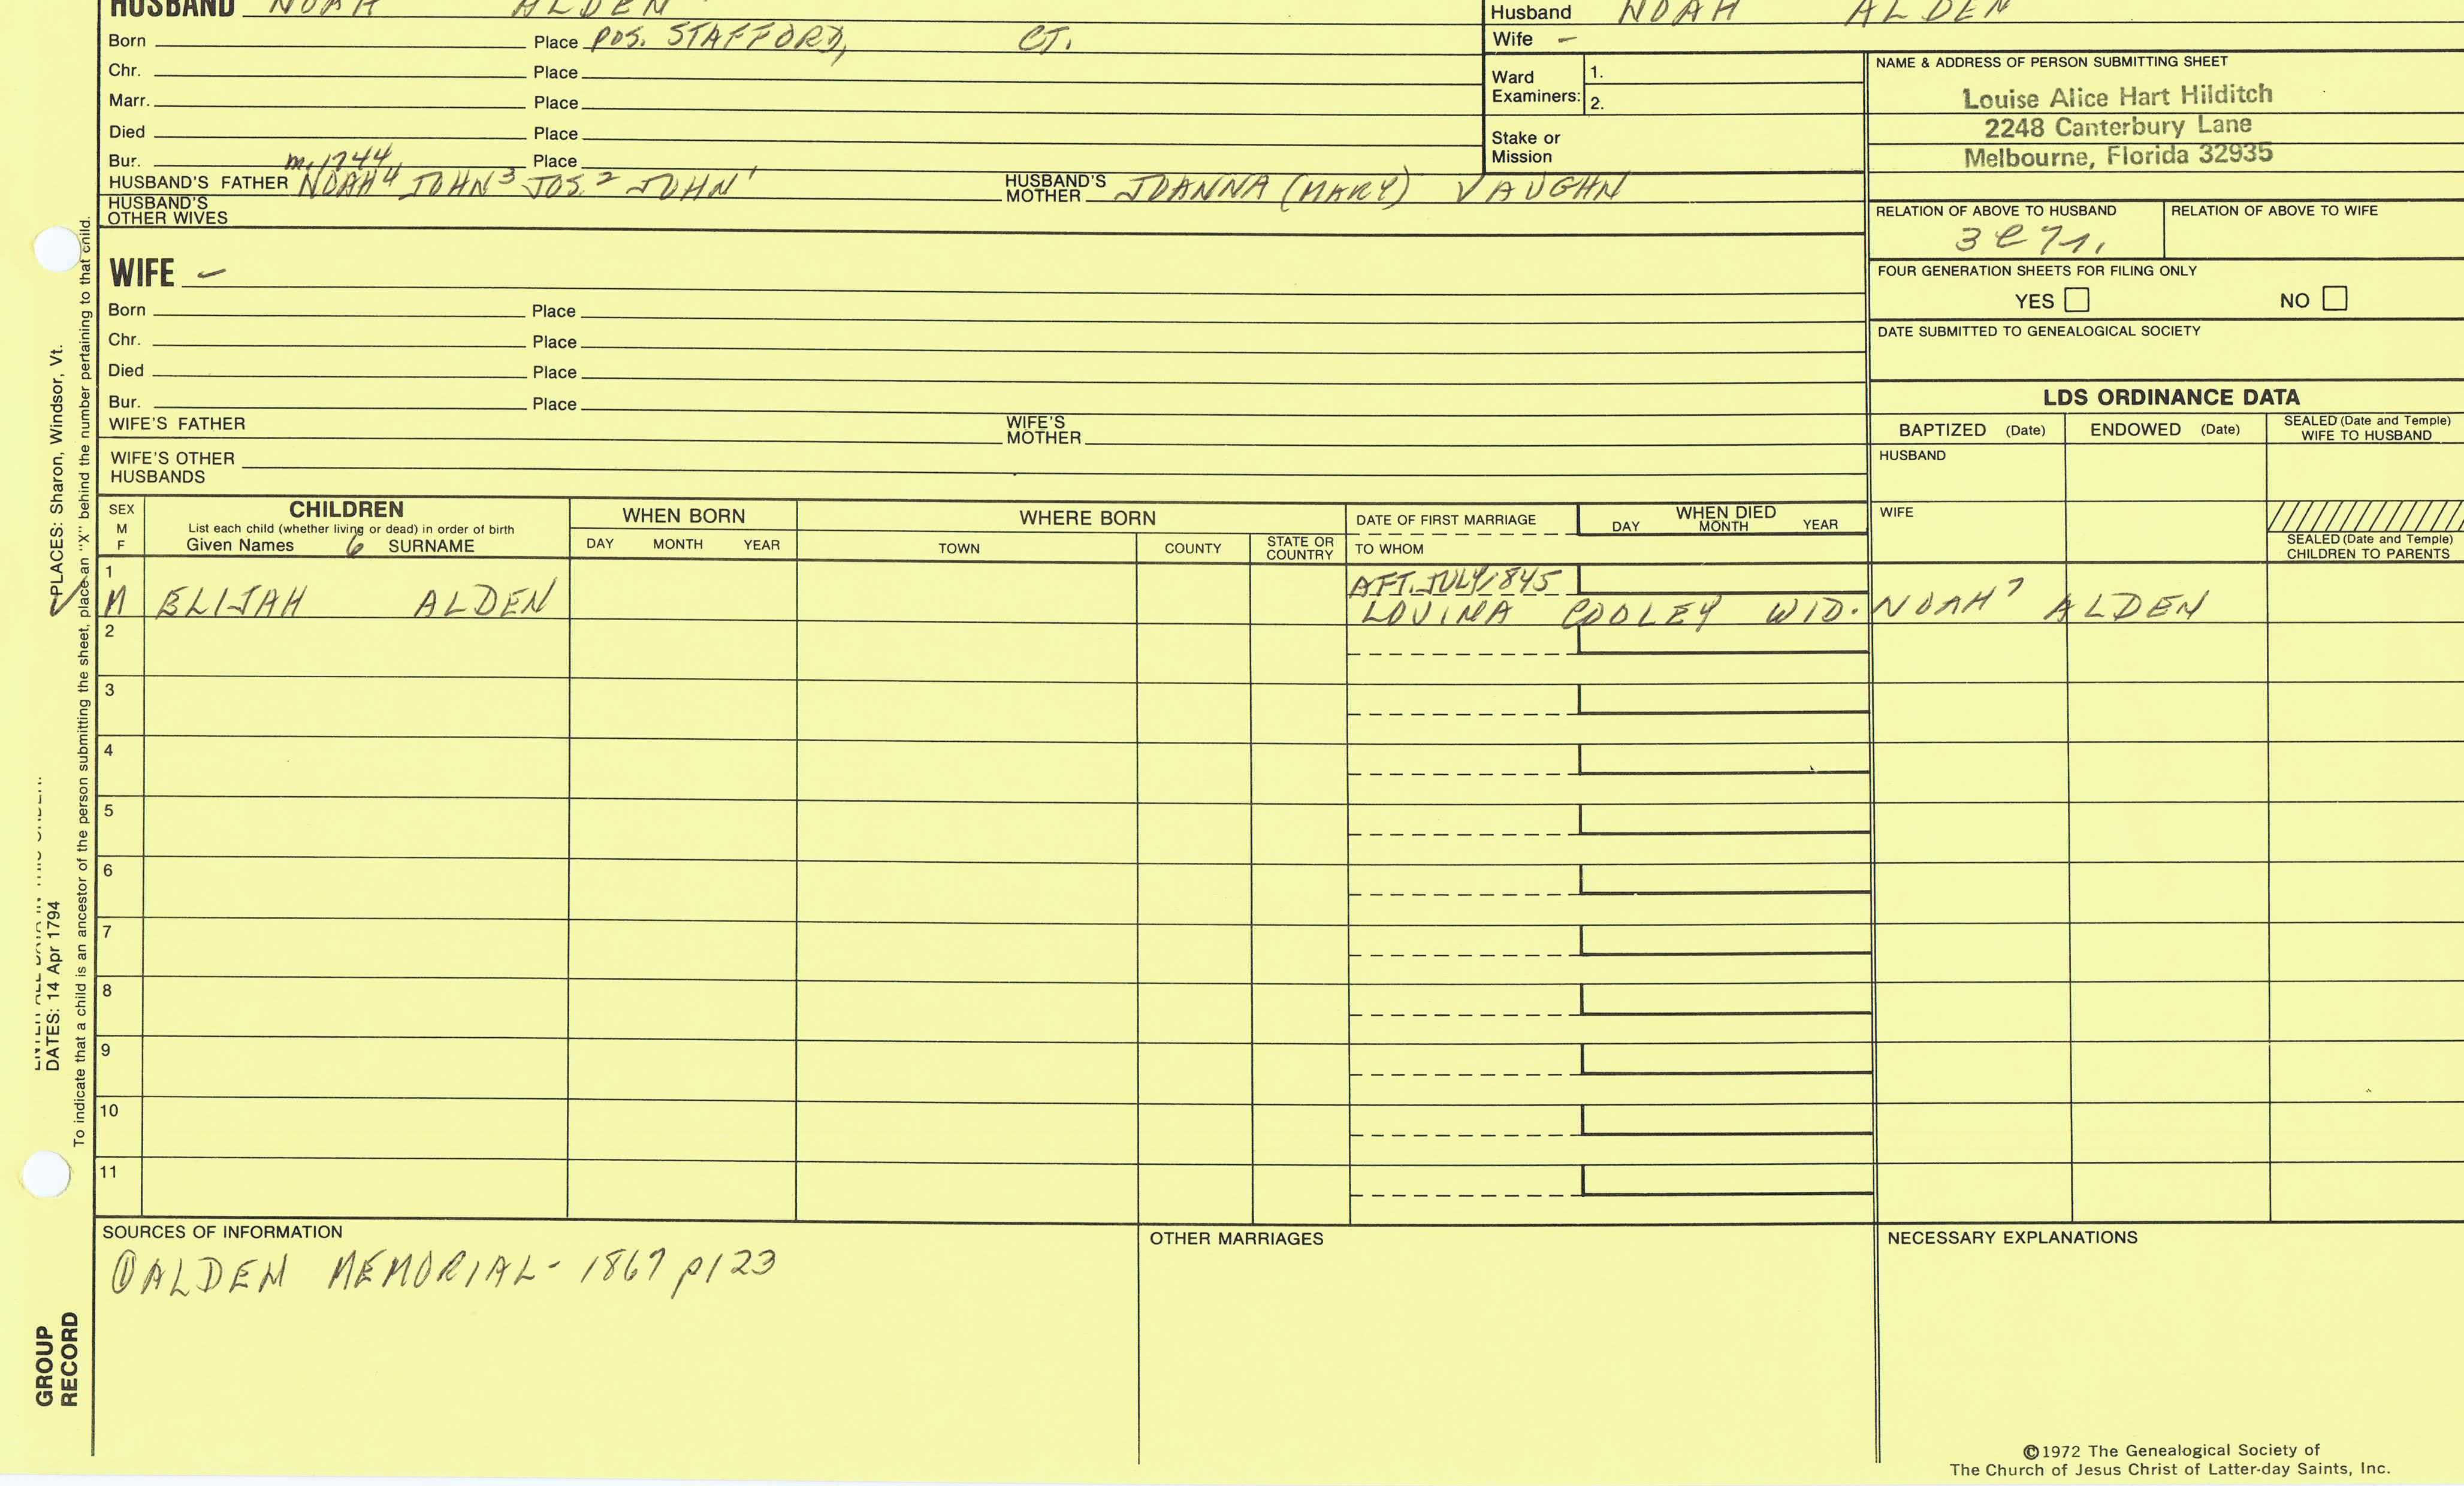 HUSBAND NOAH ALDEN
Born Place POS. STAFFORD, CT.
Chr. Place
Marr. Place
Died Place
Bur. Place
m. 1744
HUSBAND'S FATHER NOAH⁴ JOHN³ JOS.² JOHN¹ HUSBAND'S MOTHER JOANNA (MARY) VAUGHN
HUSBAND'S OTHER WIVES
Husband NOAH ALDEN
Wife -
Ward Examiners: 1.
2.
Stake or Mission
NAME & ADDRESS OF PERSON SUBMITTING SHEET
Louise Alice Hart Hilditch
2248 Canterbury Lane
Melbourne, Florida 32935
RELATION OF ABOVE TO HUSBAND RELATION OF ABOVE TO WIFE
FOUR GENERATION SHEETS FOR FILING ONLY
YES NO
DATE SUBMITTED TO GENEALOGICAL SOCIETY
WIFE -
Born Place
Chr. Place
Died Place
Bur. Place
WIFE'S FATHER WIFE'S MOTHER
WIFE'S OTHER HUSBANDS
LDS ORDINANCE DATA
BAPTIZED (Date) ENDOWED (Date) SEALED (Date and Temple) WIFE TO HUSBAND
HUSBAND
WIFE
SEALED (Date and Temple) CHILDREN TO PARENTS
SEX M F
CHILDREN
List each child (whether living or dead) in order of birth
Given Names 6 SURNAME
WHEN BORN
DAY MONTH YEAR
WHERE BORN
TOWN COUNTY STATE OR COUNTRY
DATE OF FIRST MARRIAGE
TO WHOM
WHEN DIED
DAY MONTH YEAR
1
M ELIJAH ALDEN AFT. JULY 1845
LOUINA COOLEY WID. NOAH⁷ ALDEN
2
3
4
5
6
7
8
9
10
11
SOURCES OF INFORMATION
① ALDEN MEMORIAL - 1867 p123
OTHER MARRIAGES
NECESSARY EXPLANATIONS
©1972 The Genealogical Society of
The Church of Jesus Christ of Latter-day Saints, Inc.
PLACES: Sharon, Windsor, Vt.
DATES: 14 Apr 1794
To indicate that a child is an ancestor of the person submitting the sheet, place an "X" behind the number pertaining to that child.
GROUP
RECORD